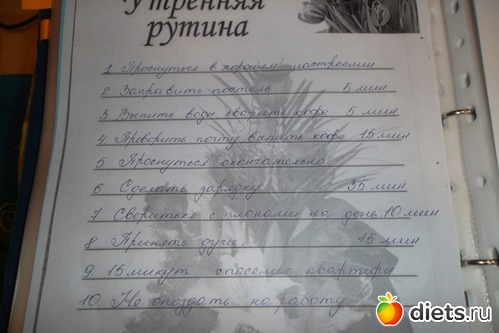 Утренняя
рутина
1 Проснуться в хорошем настроении
2 Заправить постель 5 мин
3 Выпить воды сварить кофе 5 мин
4 Проверить почту выпить кофе 15 мин
5 Проснуться окончательно
6 Сделать зарядку 35 мин
7 Свериться с планами на день 10 мин
8 Принять душ 15 мин
9 15 минут спасение квартиры
10 Не опоздать на работу
diets.ru